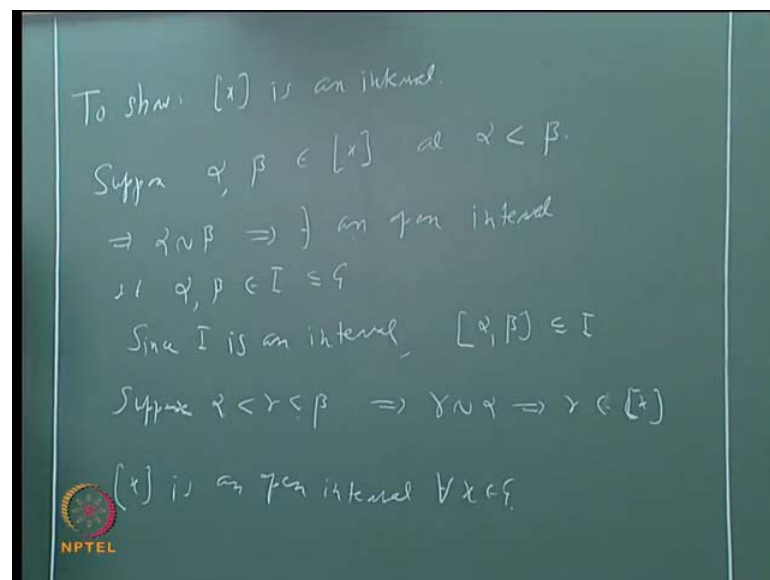 To show: [x] is an interval.
Suppose α, β ∈ [x] and α < β.
⇒ α ~ β ⇒ ∃ an open interval
s.t. α, β ∈ I ⊆ G
Since I is an interval, [α, β] ⊆ I
Suppose α < γ < β ⇒ γ ~ α ⇒ γ ∈ [x]
[x] is an open interval ∀ x ∈ G
NPTEL